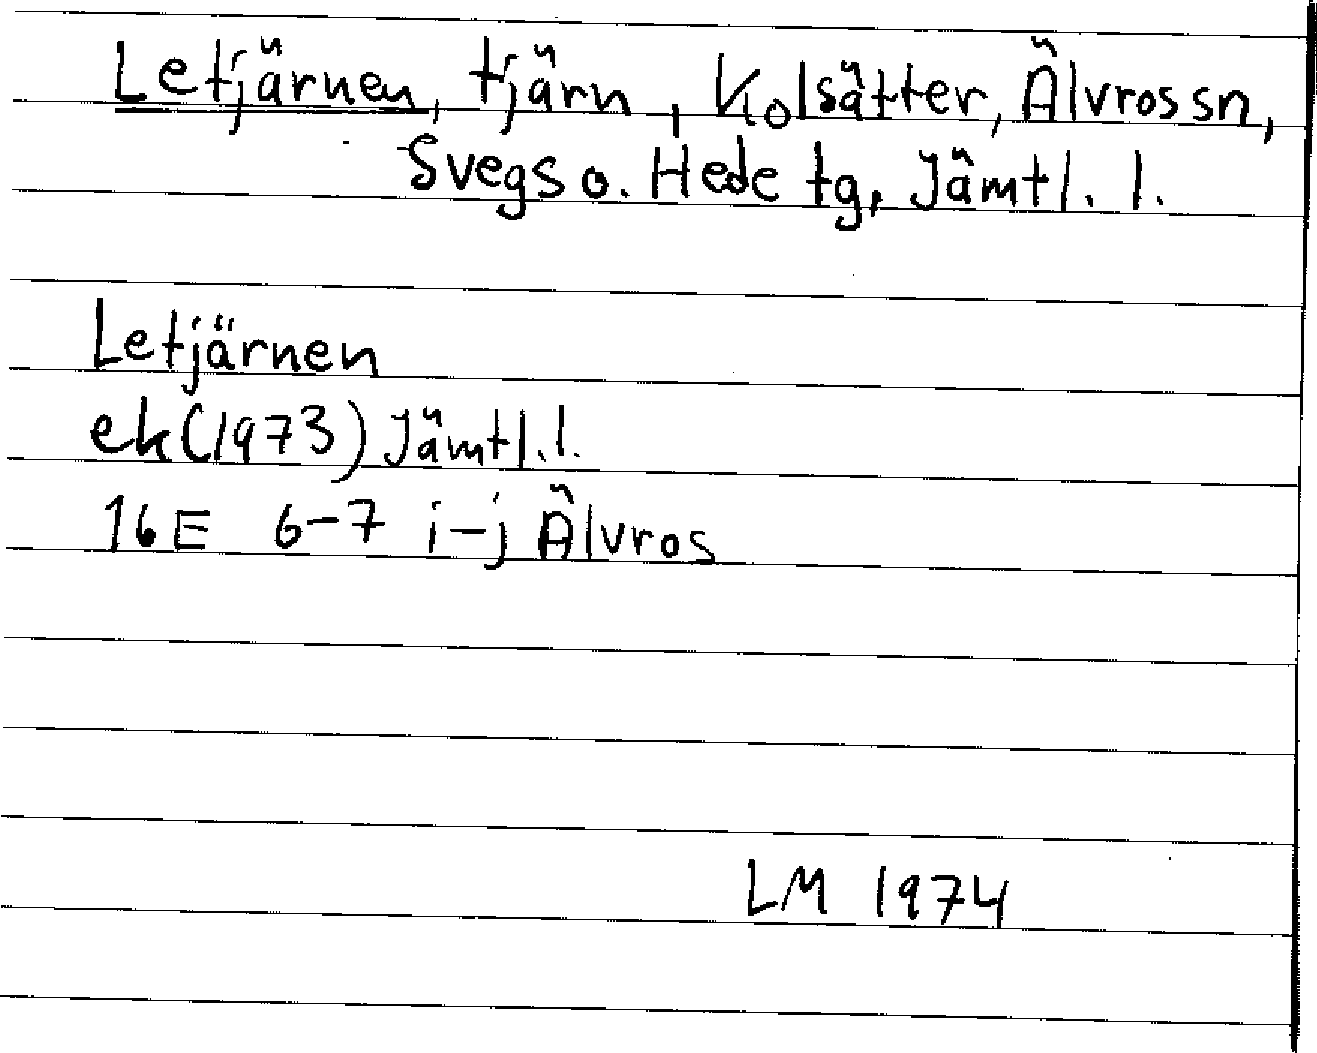 Letjärnen, tjärn, Kolsätter, Älvros sn,
Svegs o. Hede tg, Jämtl. l.
Letjärnen
ek (1973) Jämtl. l.
16E 6-7 i-j Älvros
LM 1974